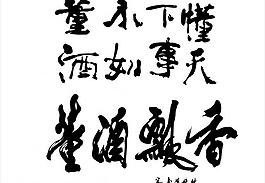 懂天
下事
不如
董酒
董酒飄香